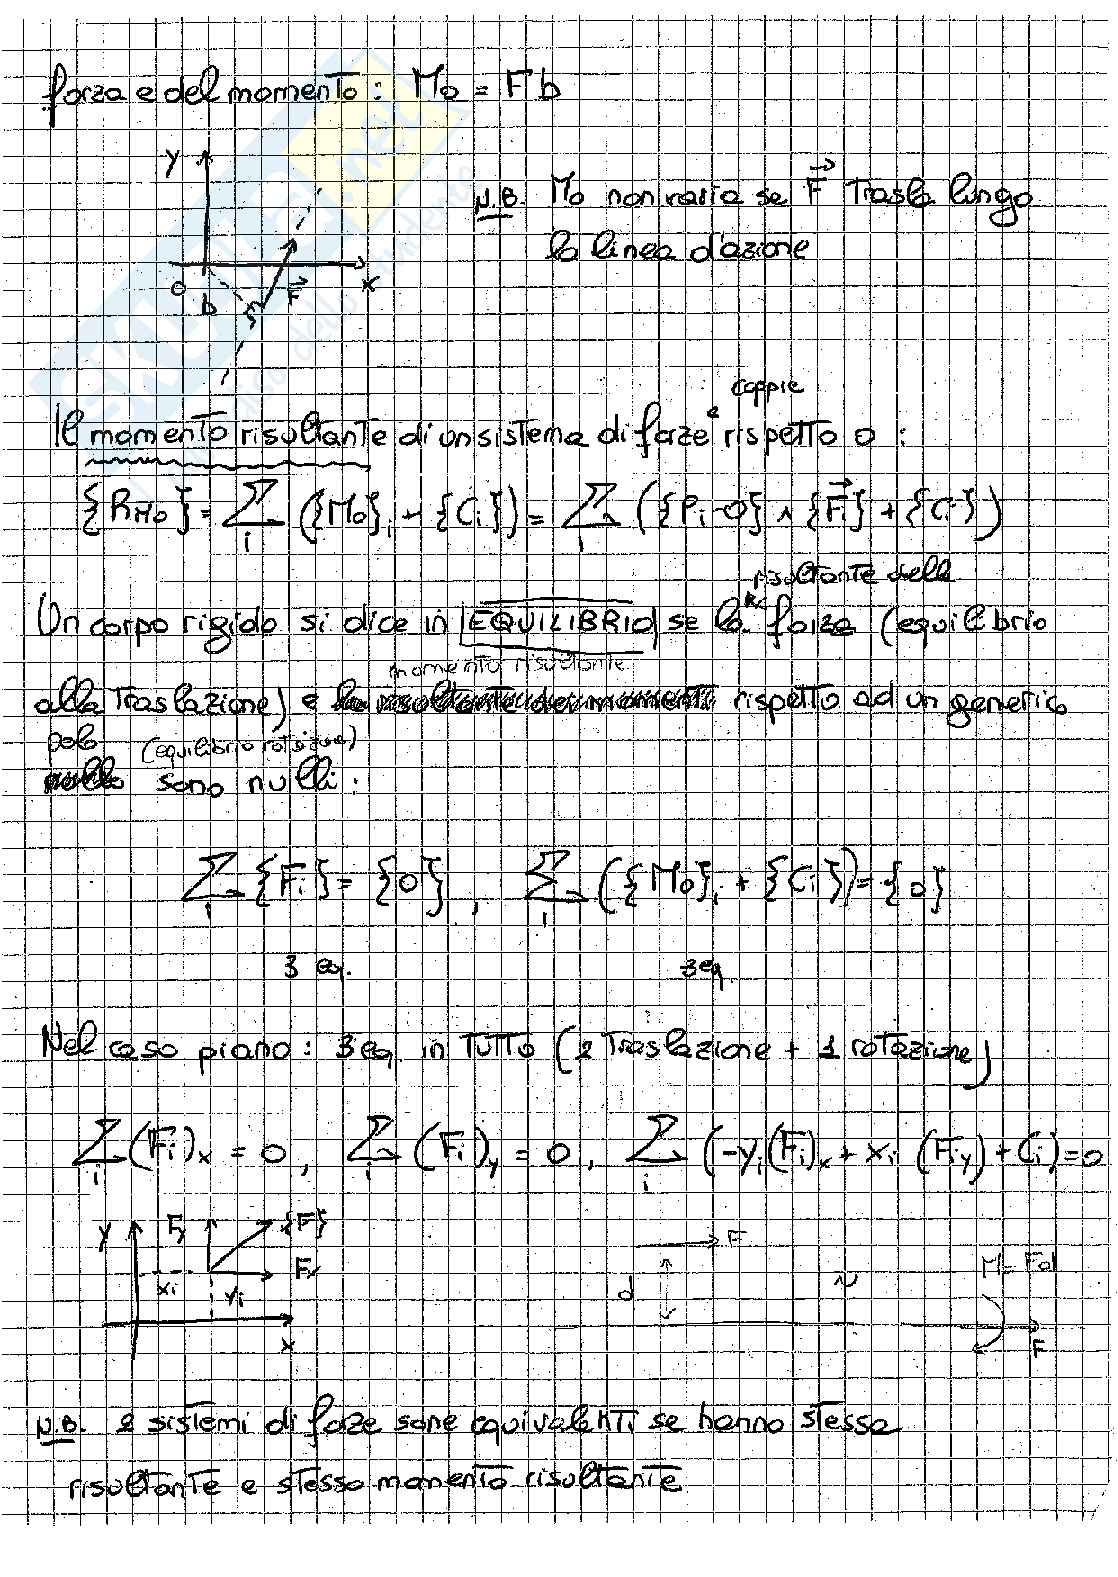 forza e del momento: Mo = Fb
y
N.B. Mo non varia se F trasla lungo
la linea d'azione
o
x
b
F
coppie
Il momento risultante di un sistema di forze e rispetto o :
{RMo} = Σi ({Mo}i + {Ci}) = Σi ({Pi-O} ∧ {Fi} + {Ci})
risultante delle
Un corpo rigido si dice in EQUILIBRIO se la forze (equilibrio
momento risultante
alla traslazione) e la risultante dei momenti rispetto ad un generico
polo (equilibrio rotazione)
nullo sono nulli:
Σi {Fi} = {0} , Σi ({Mo}i + {Ci}) = {0}
3 eq. 3 eq.
Nel caso piano: 3 eq in tutto (2 traslazione + 1 rotazione)
Σi (Fi)x = 0, Σi (Fi)y = 0, Σi (-yi(Fi)x + xi (Fiy) + Ci) = 0
y Fy {F}
Fx
xi
yi
x
F
d
~
M = Fd
F
N.B. 2 sistemi di forze sono equivalenti se hanno stessa
risultante e stesso momento risultante